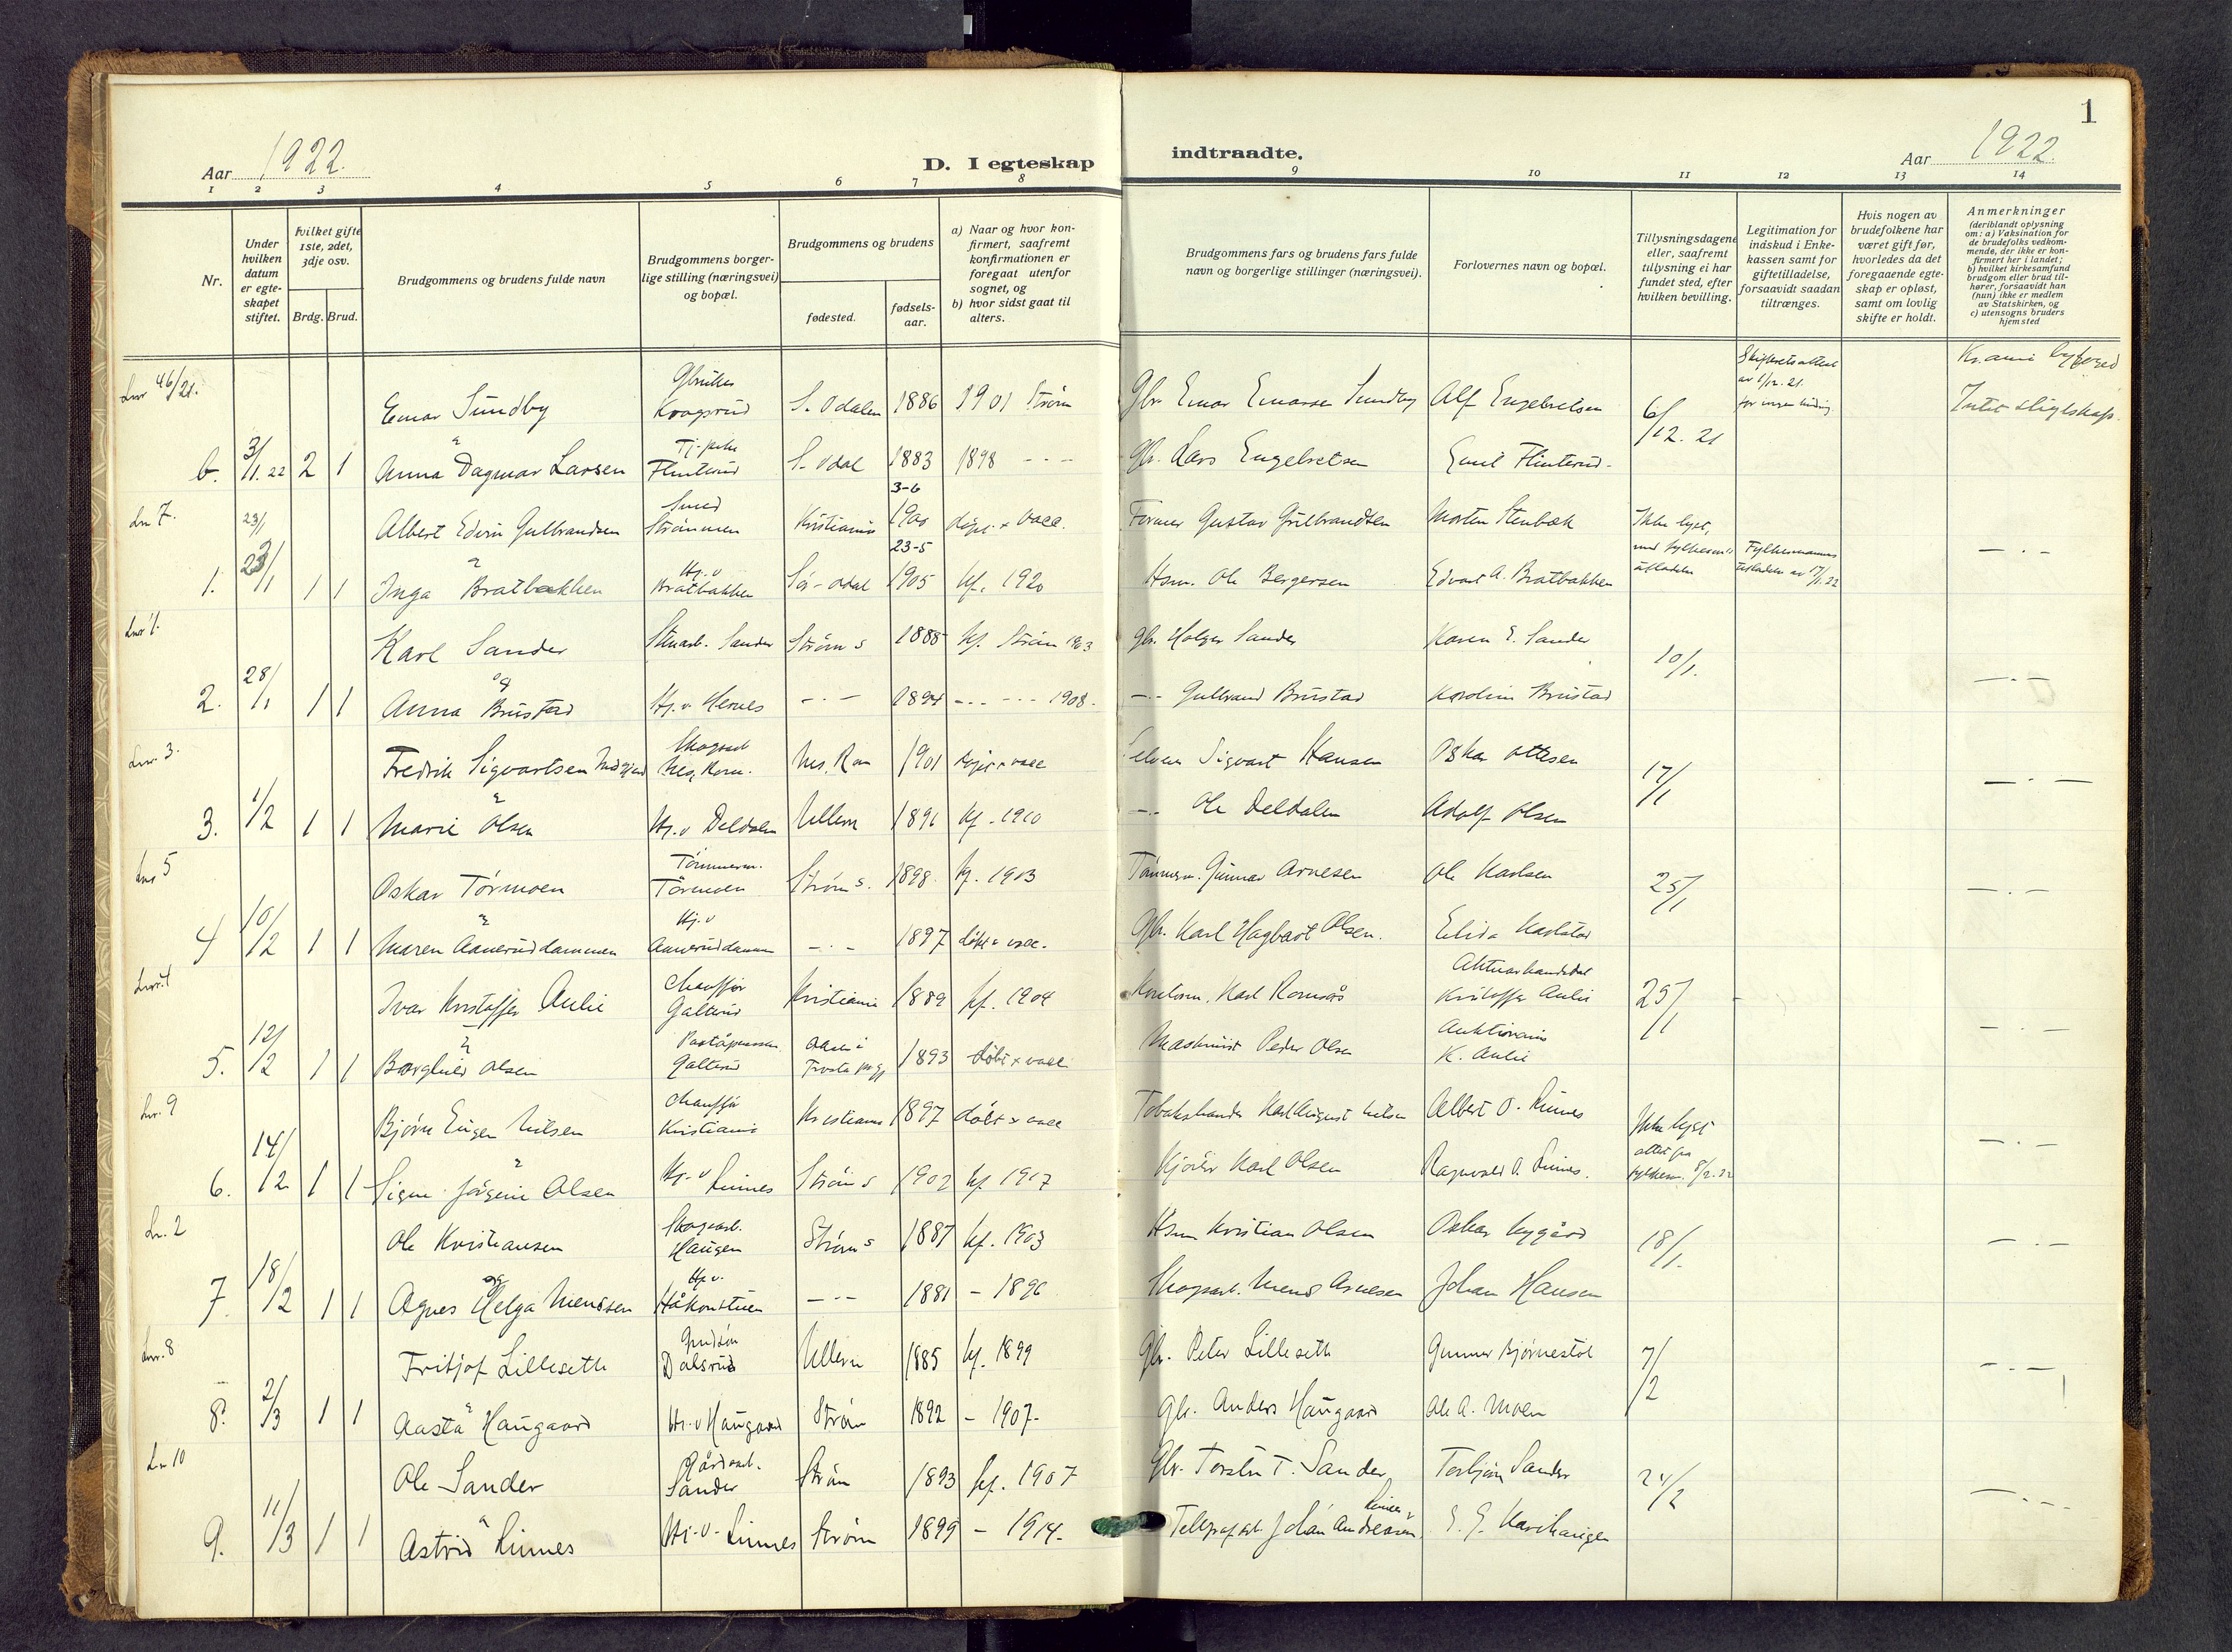 1
Aar 1922.
D. I egteskap indtraadte.
Aar 1922.
1 2 3 4 5 6 7 8 9 10 11 12 13 14
Nr.
Under hvilken datum er egteskapet stiftet.
Hvilket gifte 1ste, 2det, 3dje osv.
Brdg. Brud.
Brudgommens og brudens fulde navn
Brudgommens borgerlige stilling (næringsvei) og bopæl.
Brudgommens og brudens
fødested.
fødselsaar.
a) Naar og hvor konfirmert, saafremt konfirmationen er foregaat utenfor sognet, og
b) hvor sidst gaat til alters.
Brudgommens fars og brudens fars fulde navn og borgerlige stillinger (næringsvei).
Forlovernes navn og bopæl.
Tillysningsdagene eller, saafremt tillysning ei har fundet sted, efter hvilken bevilling.
Legitimation for indskud i Enkekassen samt for giftetilladelse, forsaavidt saadan tiltrænges.
Hvis nogen av brudefolkene har været gift før, hvorledes da det foregaaende egteskap er opløst, samt om lovlig skifte er holdt.
Anmerkninger
(deriblandt oplysning om: a) Vaksination for de brudefolks vedkommende, der ikke er konfirmert her i landet; b) hvilket kirkesamfund brudgom eller brud tilhører, forsaavidt han (hun) ikke er medlem av Statskirken, og c) utensogns bruders hjemsted
Lnr 46/21. Einar Sundby S. Odalen 1886 1901 Strøm Gbr. Einar Einarsen Sundby Alf Engebretsen 6/12. 21 Intet slegtskap.
b. 3/1. 22 2 1 Anna Dagmar Larsen Flinterud S. Odal 1883 1898 - - - Gbr. Lars Engebretsen Emil Flinterud.
Lnr 7. 23/1 Albert Edvin Gulbrandsen Smed Strømmen Kristiania 3-6 1900 døpt + vacc. Gustav Gulbrandsen Morten Stenbæk Ikke lyst, - . -
1. 23/1 1 1 Inga Bratbakken Hj. v Bratbakken Sør-Odal 23-5 1905 kf. 1920 Hsm. Ole Bergersen Edvart A. Bratbakken Fylkesmannens 17/1. 22
Lnr 1. Karl Sander Stenarb. Sander Strøm s 1888 kf. Strøm 1903 Gbr. Holger Sander Karen E. Sander 10/1. - . -
2. 28/1 1 1 Anna Brustad Hj. v. Hernes - . - 1894 - . . - . . - 1908. - . - Gulbrand Brustad Karoline Brustad
Lnr. 3. Fredrik Sigvartsen Skogsarb Nes, Rom. Nes, Rom 1901 Sigvart Hansen Oskar Ottesen 17/1 - . -
3. 1/2 1 1 Marie Olsen Hj. v Deldalen Ullern 1891 kf. 1910 - . - Ole Deldalen Adolf Olsen
Lnr 5 Oskar Tørmoen Tømmerm. Tørmoen Strøm s. 1898 kf. 1903 Tømmerm. Gunnar Arnesen Ole Karlsen 25/1 - . -
4 10/2 1 1 Maren Aaneruddammen Hj. v Aaneruddammen - . - 1897 døbt + vacc. Gbr. Karl Hagbart Olsen. Elida Karlstad
Ivar Kristoffer Aulie Chauffør Galterud Kristiania 1889 kf. 1904 Karl Romsås Kristoffer Aulie 25/1 - . -
5. 12/2 1 1 Borghild Olsen Galterud 1893 døbt + vacc. Maskinist Peder Olsen K. Aulie
Lnr. 9 Bjørn Eugen Nilsen Chauffør Kristiania Kristiania 1897 døbt + vacc Tobakshandler Karl August Nilsen Albert O. Linnes Ikke lyst - . -
6. 14/2 1 1 Signe Jørgine Olsen Hj. v Linnes Strøm s 1902 kf 1917 Kjører Karl Olsen Ragnvald O. Linnes. 8/2. 22
Lnr. 2 Ole Kristiansen Skogsarb. Haugen Strøm s 1887 kf. 1903 Hsm Kristian Olsen Oskar Nygård 18/1. - . -
7. 18/2 1 1 Agnes Helga Mensen Hj. v. Håkonstuen - . - 1881 - 1896 Skogsarb. Mens Arnesen Johan Hansen
Lnr. 8 Fritjof Lilleseth Dalsrud Ullern 1885 kf. 1899 Gbr. Peter Lilleseth Gunnar Bjørnestøl 7/2 - . -
8. 2/3 1 1 Aasta Haugaard Hj. v Haugaard Strøm 1892 - 1907- Gbr. Anders Haugaard Ole A. Moen
Lnr 10 Ole Sander Gårdsarb. Sander Strøm 1893 kf. 1907 Gbr. Torsten T. Sander Torbjørn Sander 24/2 - . -
9. 11/3 1 1 Astrid Linnes Hj. v. Linnes Strøm 1899 - 1914. Telegrafarb Johan Andreasen Linnes